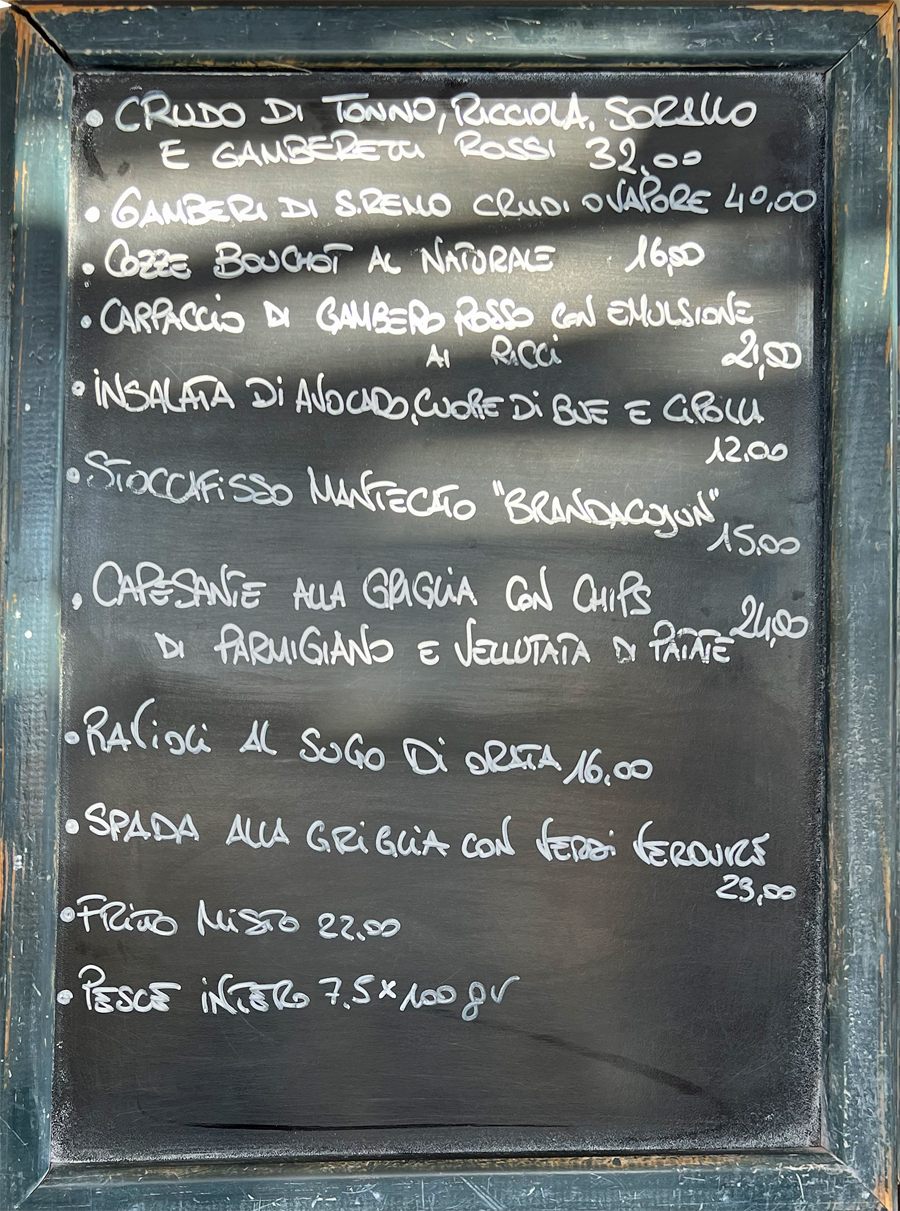 • CRUDO DI TONNO, RICCIOLA, SORELLO
E GAMBERETTI ROSSI 32,00
• GAMBERI DI S.REMO CRUDI O VAPORE 40,00
• COZZE BOUCHOT AL NATURALE 16,00
• CARPACCIO DI GAMBERO ROSSO CON EMULSIONE
AI RICCI 21,00
• INSALATA DI AVOCADO, CUORE DI BUE E CIPOLLA
12.00
• STOCCAFISSO MANTECATO "BRANDACUJUN"
15.00
• CAPESANTE ALLA GRIGLIA CON CHIPS
DI PARMIGIANO E VELLUTATA DI PATATE 24,00
• RAVIOLI AL SUGO DI ORATA 16.00
• SPADA ALLA GRIGLIA CON VERDI VERDURE
23,00
• FRITTO MISTO 22.00
• PESCE INTERO 7.5 x 100 gr